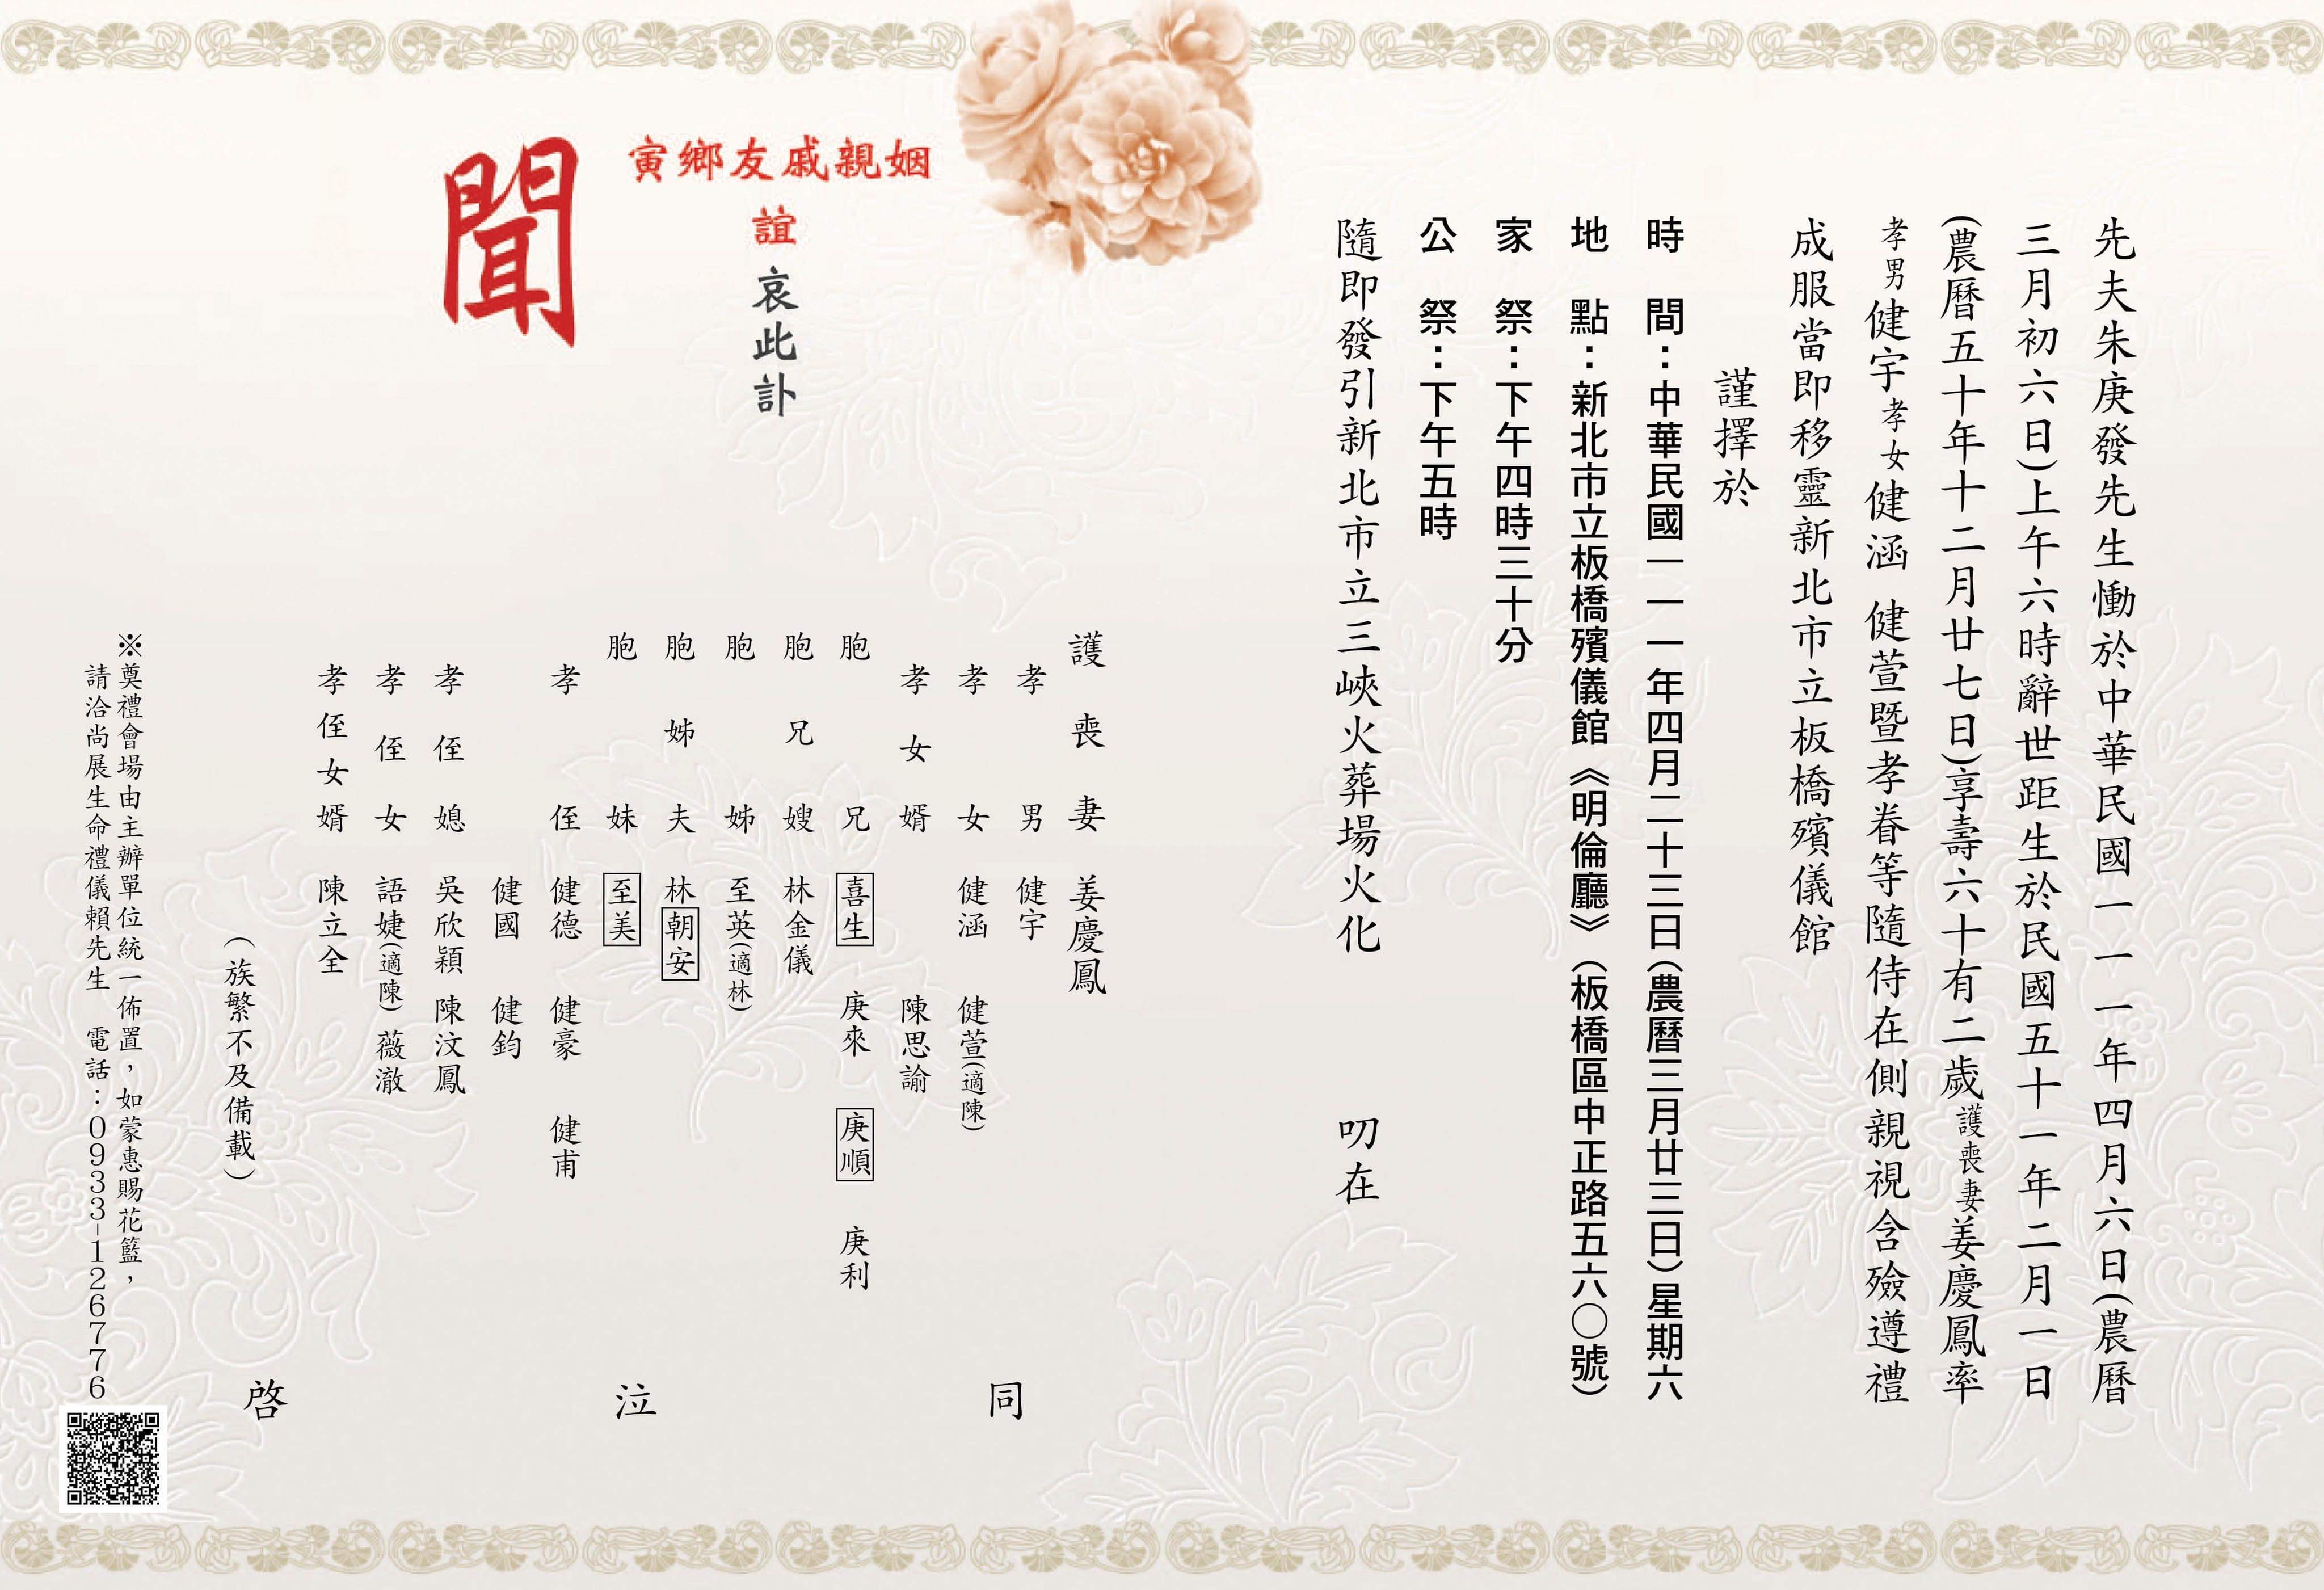 先夫朱庚發先生慟於中華民國一一一年四月六日(農曆
三月初六日)上午六時辭世距生於民國五十一年二月一日
(農曆五十年十二月廿七日)享壽六十有二歲護喪妻姜慶鳳率
孝男健宇孝女健涵 健萱暨孝眷等隨侍在側親視含殮遵禮
成服當即移靈新北市立板橋殯儀館
謹擇於
時 間：中華民國一一一年四月二十三日(農曆三月廿三日)星期六
地 點：新北市立板橋殯儀館《明倫廳》(板橋區中正路五六〇號)
家 祭：下午四時三十分
公 祭：下午五時
隨即發引新北市立三峽火葬場火化 叨在
姻親戚友鄉寅
誼 哀此訃
聞
護喪妻 姜慶鳳
孝男 健宇
孝女 健涵 健萱(適陳)
孝女婿 陳思諭
胞兄 喜生 庚來 庚順 庚利
胞兄嫂 林金儀
胞姊 至英(適林)
胞姊夫 林朝安
胞妹 至美
孝侄 健德 健豪 健甫
健國 健鈞
孝侄媳 吳欣穎 陳汶鳳
孝侄女 語婕(適陳) 薇澈
孝侄女婿 陳立全
(族繁不及備載)
同 泣 啓
※奠禮會場由主辦單位統一佈置，如蒙惠賜花籃，
請洽尚展生命禮儀賴先生 電話：0933-126776